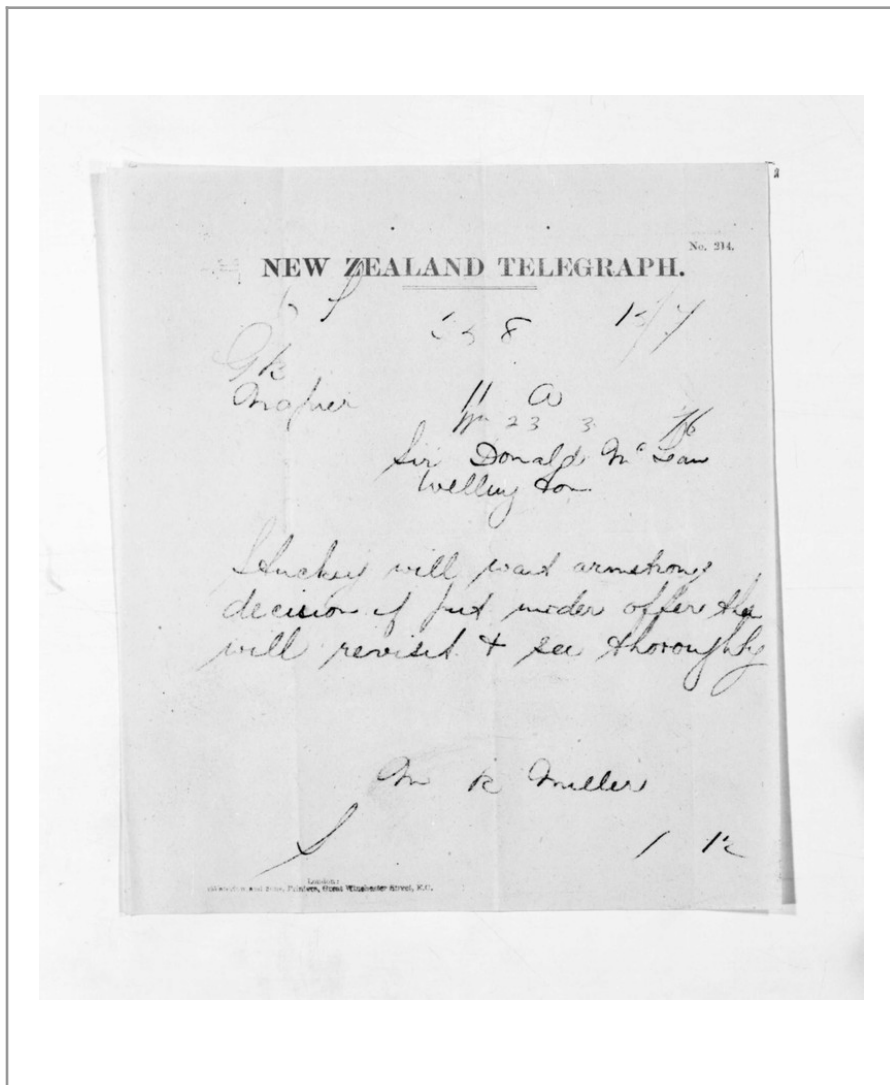 No. 214.
NEW ZEALAND TELEGRAPH.
8
Napier
23 3 76
Sir Donald McLean
Wellington
Stuckey will want armstrong
decision if put under offer
will revisit & see thoroughly
Miller
London:
and Sons, Printers, Great Winchester Street, E.C.